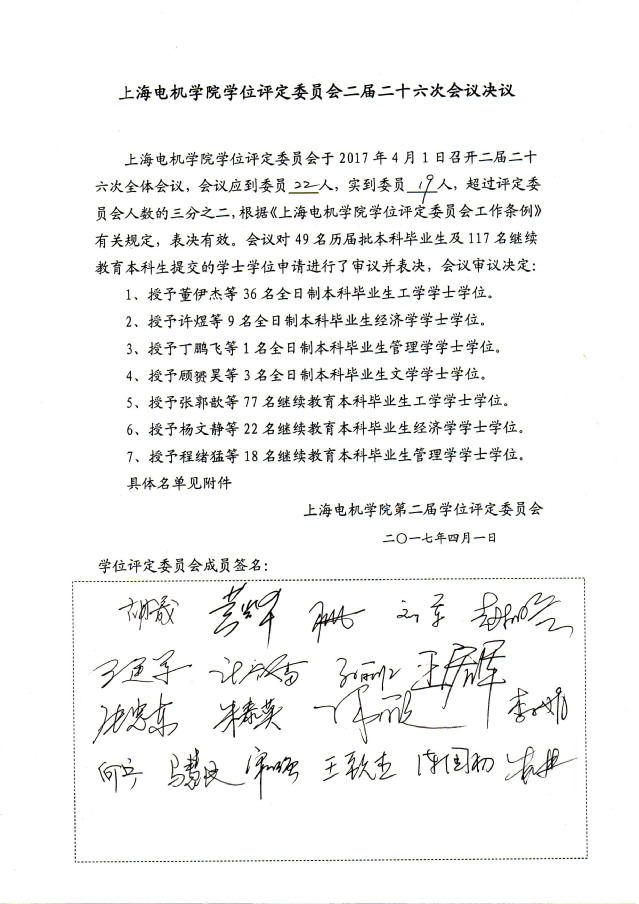 上海电机学院学位评定委员会二届二十六次会议决议
上海电机学院学位评定委员会于2017年4月1日召开二届二十
六次全体会议，会议应到委员22人，实到委员19人，超过评定委
员会人数的三分之二，根据《上海电机学院学位评定委员会工作条例》
有关规定，表决有效。会议对49名历届批本科毕业生及117名继续
教育本科生提交的学士学位申请进行了审议并表决，会议审议决定：
1、授予董伊杰等36名全日制本科毕业生工学学士学位。
2、授予许煜等9名全日制本科毕业生经济学学士学位。
3、授予丁鹏飞等1名全日制本科毕业生管理学学士学位。
4、授予顾赟昊等3名全日制本科毕业生文学学士学位。
5、授予张郭歆等77名继续教育本科毕业生工学学士学位。
6、授予杨文静等22名继续教育本科毕业生经济学学士学位。
7、授予程绪猛等18名继续教育本科毕业生管理学学士学位。
具体名单见附件
上海电机学院第二届学位评定委员会
二〇一七年四月一日
学位评定委员会成员签名：
胡晟 刘军
王建军
朱泰英
马慧民 陈国初